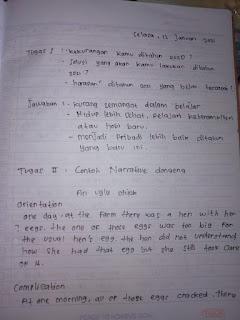 Selasa, 12 Januari 2021
Tugas I : - kekurangan kamu ditahun 2020?
- solusi yang akan kamu lakukan ditahun
2021?
- harapan" ditahun 2021 yang belum tercapai?
Jawaban : - kurang semangat dalam belajar
- Hidup lebih sehat, belajar keterampilan
atau hobi baru.
- menjadi Pribadi lebih baik ditahun
yang baru ini.
Tugas II : Contoh Narrative dongeng
An ugly chick
Orientation
one day, at the farm there was a hen with her
7 eggs. the one of those eggs was too big for
the usual hen's egg. the hen did not understand
how she had that egg but she still took care
of it.
Complication
At one morning, all of those eggs cracked. There